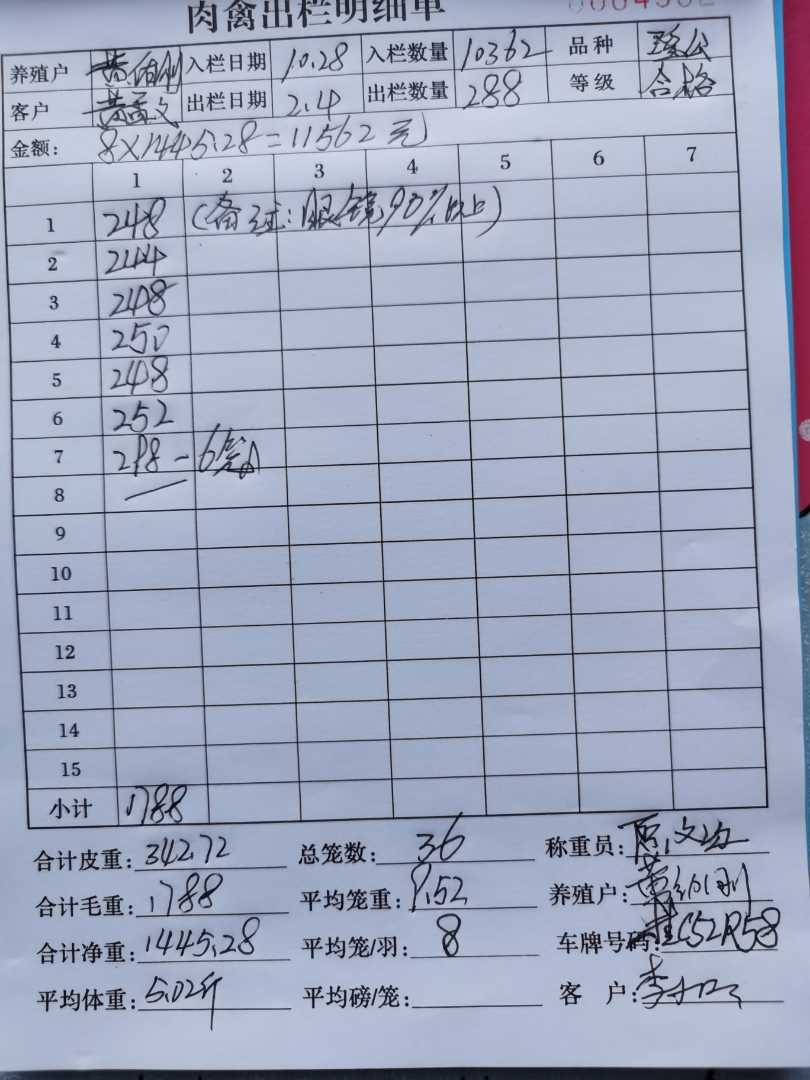 肉禽出栏明细单
养殖户 入栏日期 10.28 入栏数量 10362 品种
客户 黄孟文 出栏日期 2.4 出栏数量 288 等级 合格
金额: 8×1445.28=11562元
1 2 3 4 5 6 7
1 248 (备注:眼镜90%以上)
2 244
3 248
4 250
5 248
6 252
7 298-6笼
8
9
10
11
12
13
14
15
小计 1788
合计皮重: 342.72 总笼数: 36 称重员:
合计毛重: 1788 平均笼重: 9.52 养殖户:
合计净重: 1445.28 平均笼/羽: 8 车牌号码: 桂C52R58
平均体重: 5.02斤 平均磅/笼: 客户: